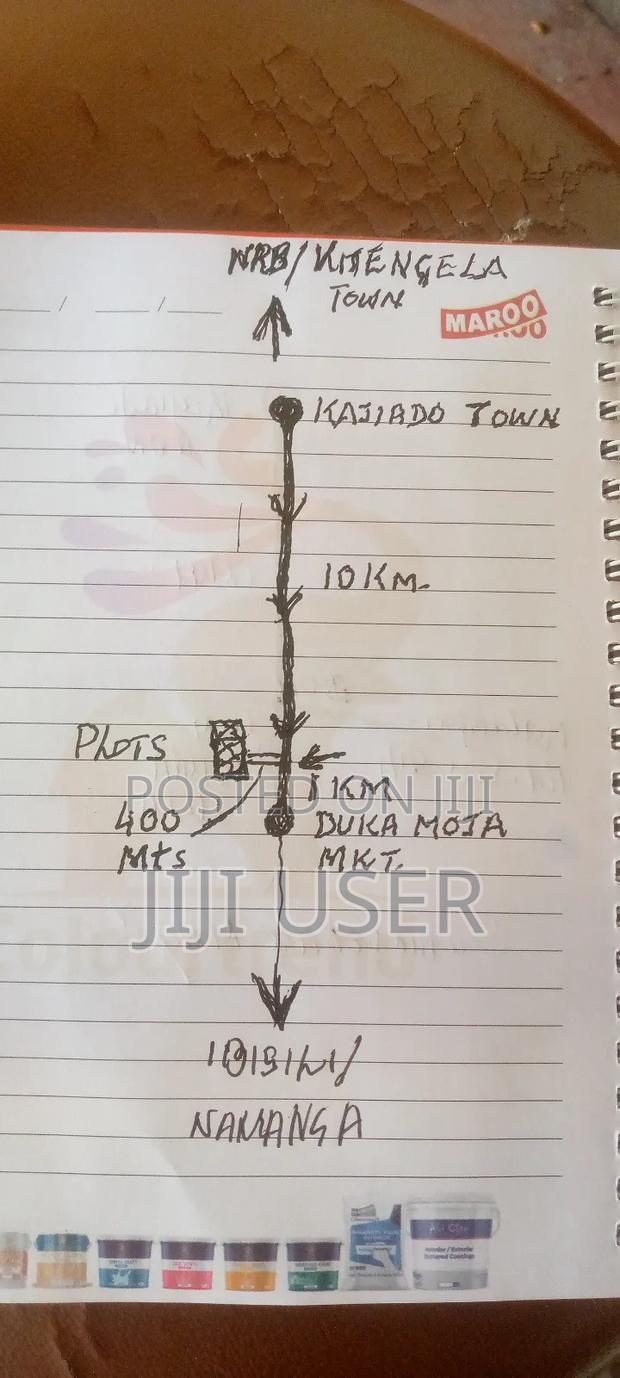 NRB/KITENGELA
TOWN
MAROO
KAJIADO TOWN
10KM.
PLOTS
1KM
POSTED ON JIJI
400
Mts
DUKA MOJA
MKT.
JIJI USER
NAMANGA